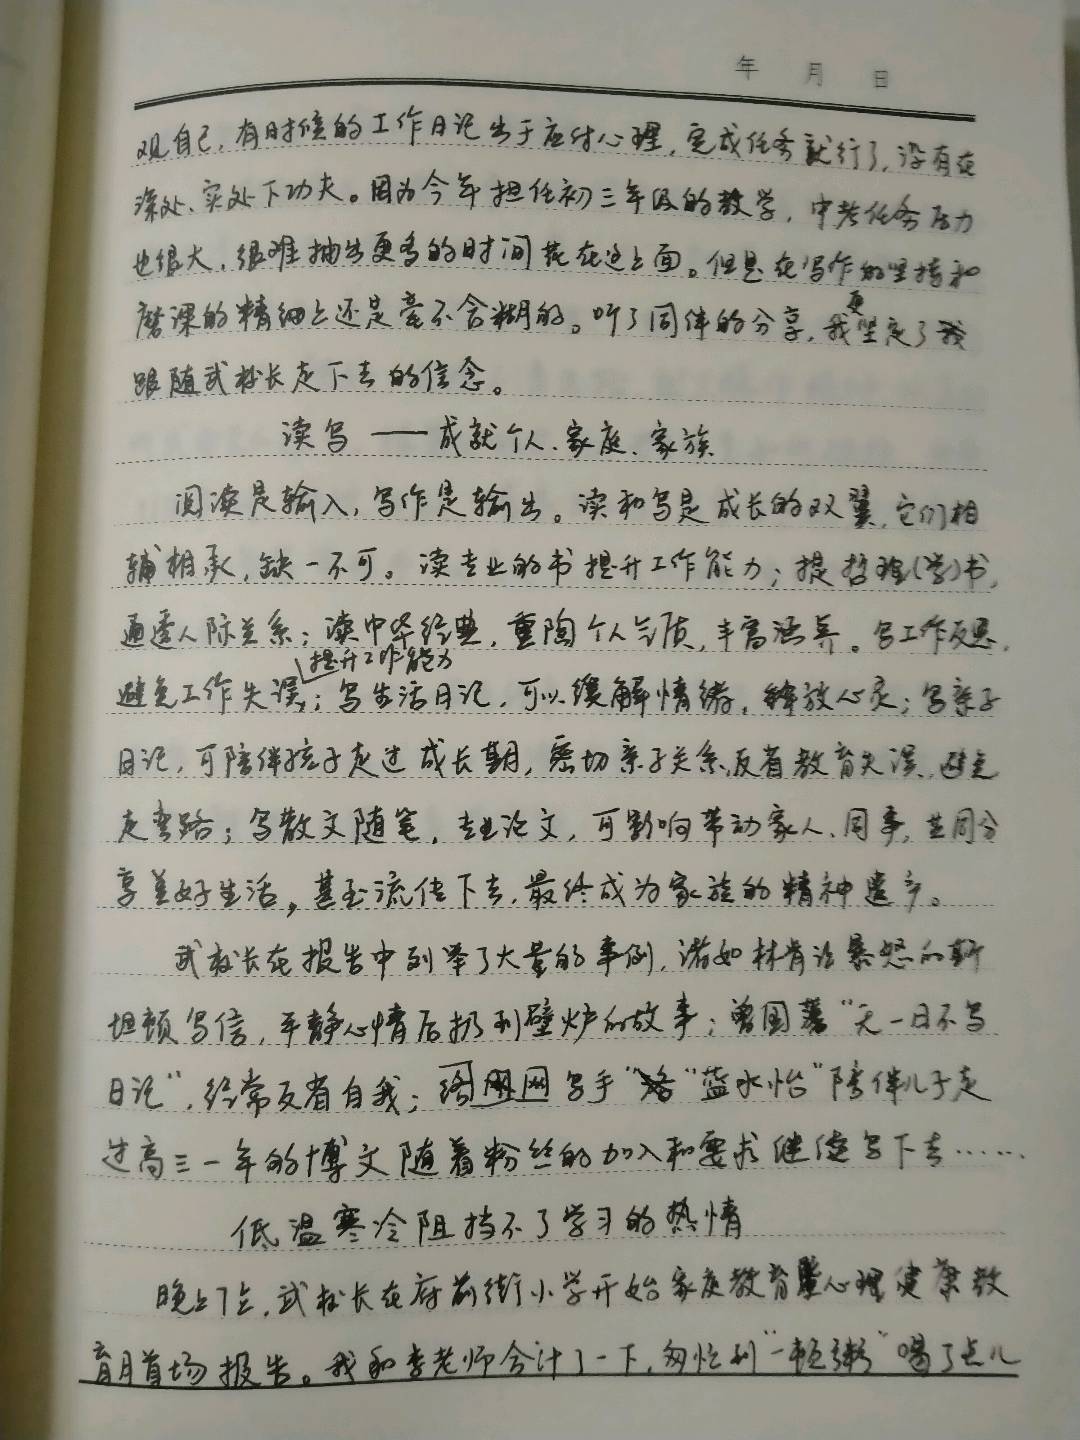 年 月 日
观自己，有时候的工作日记出于应付心理，完成任务就行了，没有在
深处、实处下功夫。因为今年担任初三年级的教学，中考任务压力
也很大，很难抽出更多的时间花在这上面。但是在写作的坚持和
磨课的精细上还是毫不含糊的。听了同伴的分享，我更坚定了我
跟随武校长走下去的信念。
读写——成就个人、家庭、家族
阅读是输入，写作是输出。读和写是成长的双翼，它们相
辅相承，缺一不可。读专业的书提升工作能力；提哲理(学)书，
通透人际关系；读中华经典，重陶个人气质，丰富涵养。写工作反思，
避免工作失误，提升工作能力；写生活日记，可以缓解情绪，释放心灵；写亲子
日记，可陪伴孩子走过成长期，密切亲子关系，反省教育失误，避免
走弯路；写散文随笔，专业论文，可影响带动家人、同事，共同分
享美好生活，甚至流传下去，最终成为家族的精神遗产。
武校长在报告中列举了大量的事例，诸如林肯让暴怒的斯
坦顿写信，平静心情后扔到壁炉的故事；曾国藩“无一日不写
日记”，经常反省自我；网写手“蓝水怡”陪伴儿子走
过高三一年的博文随着粉丝的加入和要求继续写下去……
低温寒冷阻挡不了学习的热情
晚上7点，武校长在府前街小学开始家庭教育暨心理健康教
育月首场报告。我和李老师合计了一下，匆忙到“一顿粥”喝了点儿